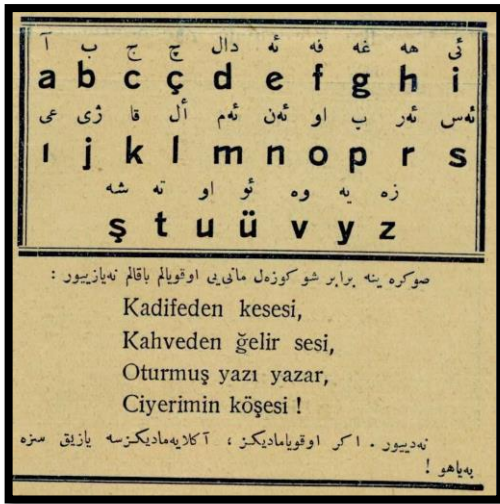 آ ب ج چ دال ئه فه غه هه ئی
a b c ç d e f g h i
عی ژی قا أل ئه‌م ئه‌ن او پ ئه‌ر ئه‌س
ı j k l m n o p r s
شه ته او ئو وه یه زه
ş t u ü v y z
صوکره ینه برابر شو کوزه‌ل مانی‌یی اوقویالم باقالم نه‌یازییور :
Kadifeden kesesi,
Kahveden ğelir sesi,
Oturmuş yazı yazar,
Ciyerimin köşesi !
نه‌دییور . اکر اوقویامادیکز ، آکلایه‌مادیکزسه یازیق سزه
به‌یاهو !